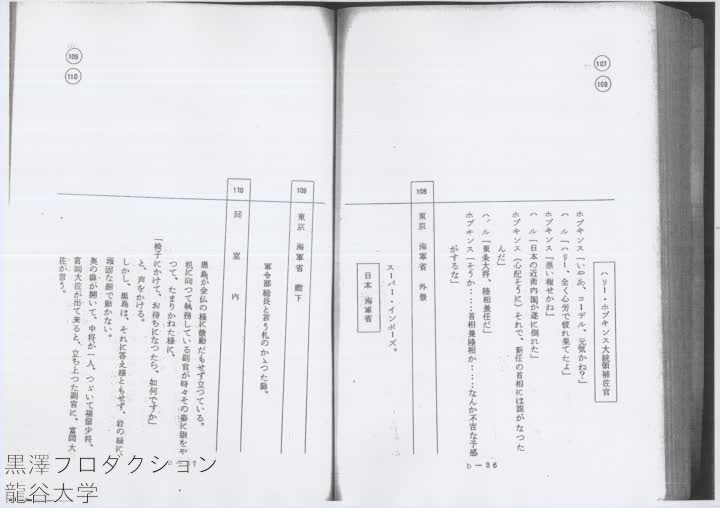 107
108
ハリー・ホプキンス大統領補佐官
ホプキンス「いやあ、コーデル、元気かね？」
ハル「ハリー、全く心労で疲れ果てたよ」
ホプキンス「悪い報せかね」
ハル「日本の近衛内閣が遂に倒れた」
ホプキンス（心配そうに）それで、新任の首相には誰がなつた
んだ」
ハル「東条大将、陸相兼任だ」
ホプキンス「そうか……首相兼陸相か……なんか不吉な予感
がするな」
108 東京 海軍省 外景
スーパー・インポーズ。
日本 海軍省
b－36
109
110
109 東京 海軍省 廊下
軍令部総長と言う札のかゝつた扉。
110 同 室内
黒島が金仏の様に微動だもせず立つている。
机に向つて執務している副官が時々その姿に眼をや
つて、たまりかねた様に、
「椅子にかけて、お待ちになつたら、如何ですか」
と、声をかける。
しかし、黒島は、それに答え様ともせず、岩の様に、
頑固な顔で動かない。
奥の扉が開いて、中将が一人、つゞいて福留少将、
富岡大佐が出て来ると、立ち上つた副官に、富岡大
佐が言う。
黒澤プロダクション
龍谷大学